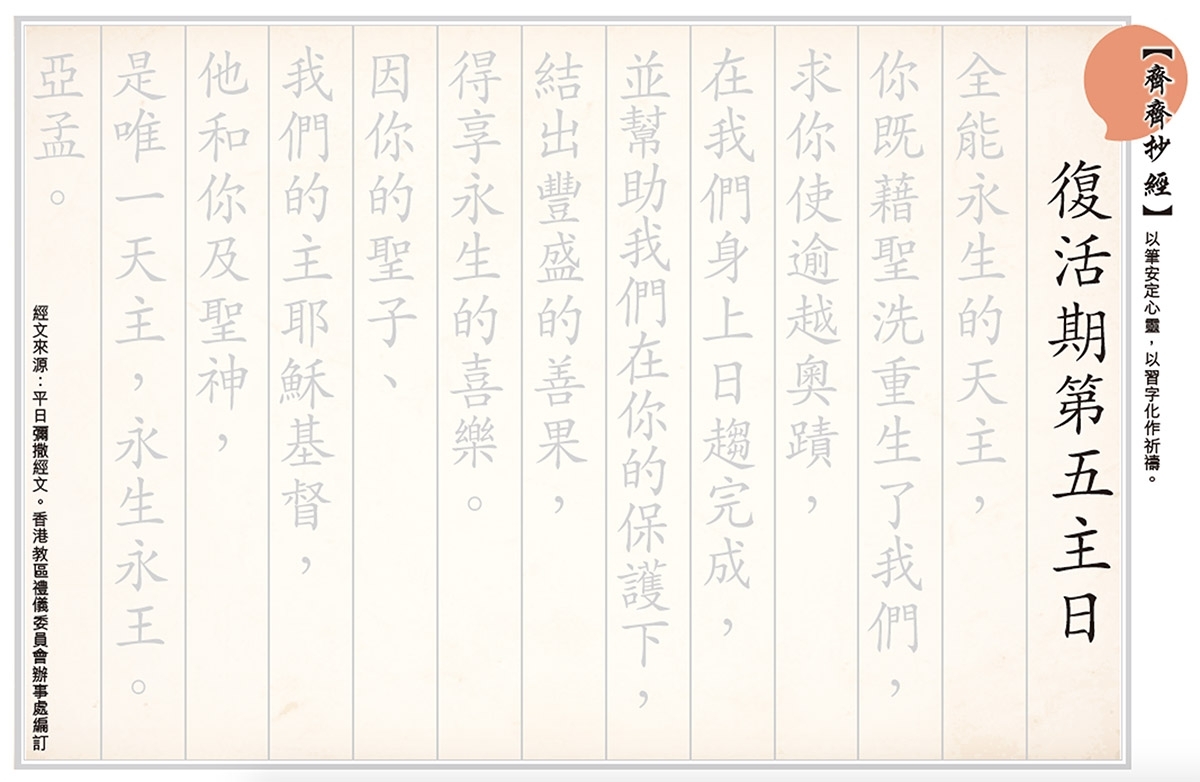 【齊齊抄經】以筆安定心靈，以習字化作祈禱。
復活期第五主日
全能永生的天主，
你既藉聖洗重生了我們，
求你使逾越奧蹟，
在我們身上日趨完成，
並幫助我們在你的保護下，
結出豐盛的善果，
得享永生的喜樂。
因你的聖子、
我們的主耶穌基督，
他和你及聖神，
是唯一天主，永生永王。
亞孟。
經文來源：平日彌撒經文。香港教區禮儀委員會辦事處編訂